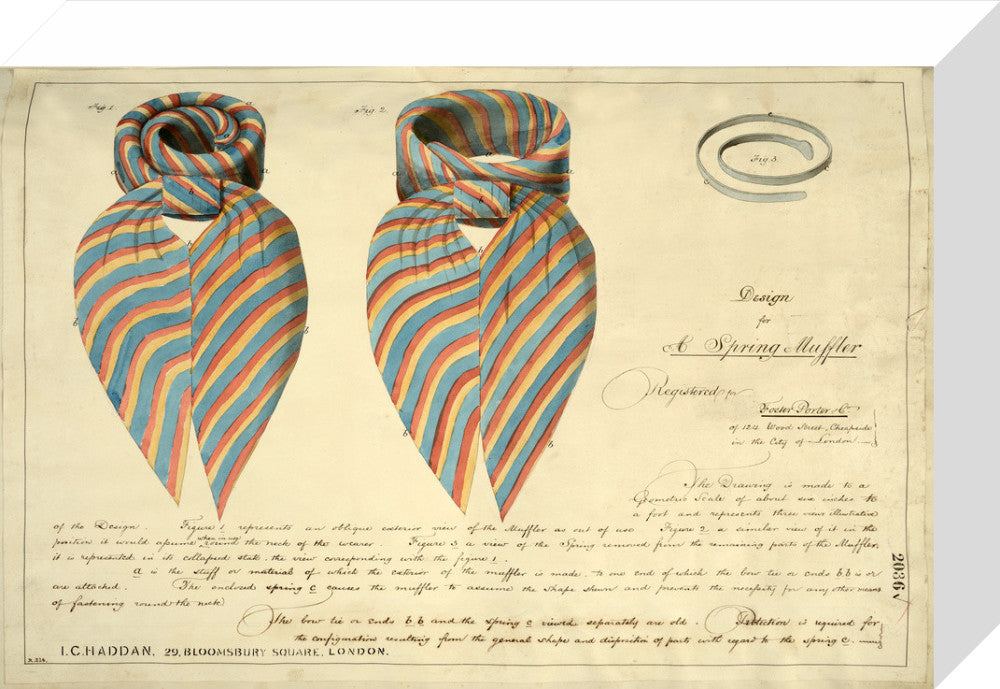 Fig. 1.
a
a
a
h
b
b
Fig. 2.
a
a
h
h
b
b
c
Fig. 3.
c
c
Design
for
A Spring Muffler
Registered for
Foster Porter & Co
of 124 Wood Street, Cheapside
in the City of London.
The Drawing is made to a
Geometric Scale of about six inches to
a foot and represents three views illustrative
of the Design. Figure 1 represents an oblique exterior view of the Muffler as out of use Figure 2 a similar view of it in the
position it would assume when in use round the neck of the wearer. Figure 3 a view of the Spring removed from the remaining parts of the Muffler,
it is represented in its collapsed state, the view corresponding with the figure 1.
a is the stuff or material of which the exterior of the muffler is made, to one end of which the bow tie or ends b.b is or
are attached. The enclosed spring c causes the muffler to assume the shape shewn and prevents the necessity for any other means
of fastening round the neck.
The bow tie or ends b.b and the spring c viewed separately are old. Protection is required for
the configuration resulting from the general shape and disposition of parts with regard to the spring c.
I.C.HADDAN, 29, BLOOMSBURY SQUARE, LONDON.